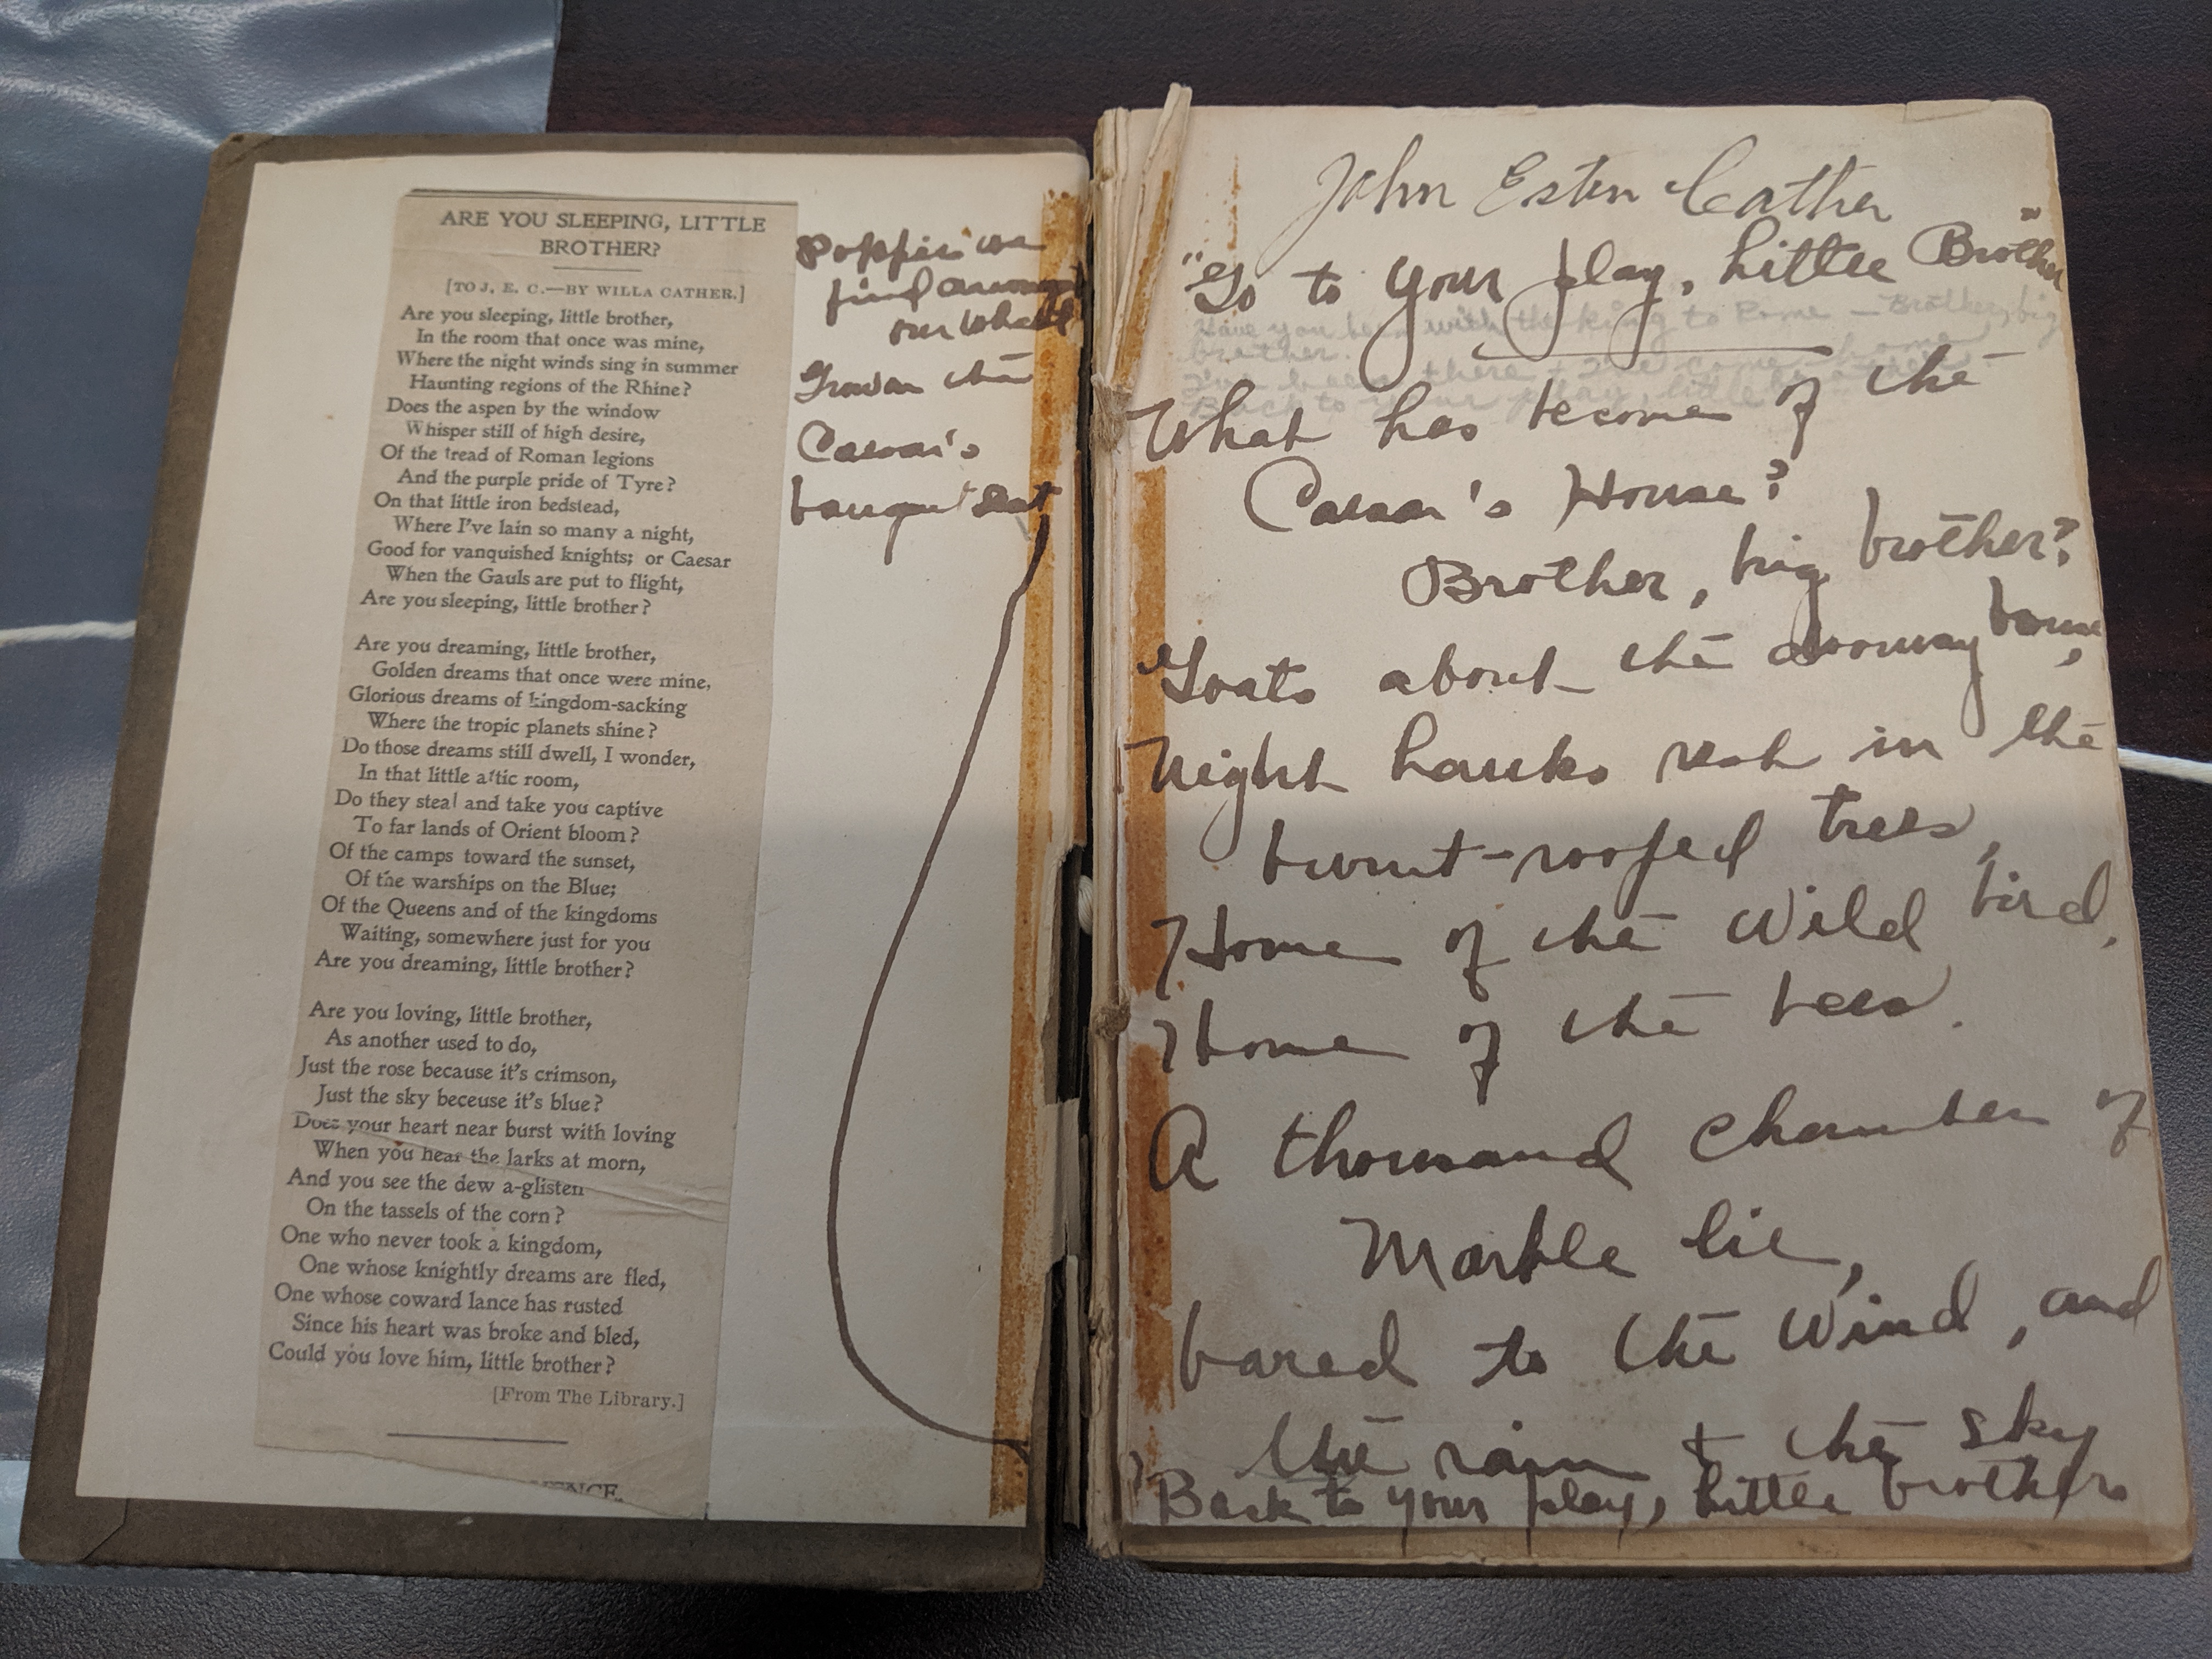 ARE YOU SLEEPING, LITTLE
BROTHER?
[TO J. E. C.—BY WILLA CATHER.]
Are you sleeping, little brother,
In the room that once was mine,
Where the night winds sing in summer
Haunting regions of the Rhine?
Does the aspen by the window
Whisper still of high desire,
Of the tread of Roman legions
And the purple pride of Tyre?
On that little iron bedstead,
Where I've lain so many a night,
Good for vanquished knights; or Caesar
When the Gauls are put to flight,
Are you sleeping, little brother?
Are you dreaming, little brother,
Golden dreams that once were mine,
Glorious dreams of kingdom-sacking
Where the tropic planets shine?
Do those dreams still dwell, I wonder,
In that little attic room,
Do they steal and take you captive
To far lands of Orient bloom?
Of the camps toward the sunset,
Of the warships on the Blue;
Of the Queens and of the kingdoms
Waiting, somewhere just for you
Are you dreaming, little brother?
Are you loving, little brother,
As another used to do,
Just the rose because it's crimson,
Just the sky beceuse it's blue?
Does your heart near burst with loving
When you hear the larks at morn,
And you see the dew a-glisten
On the tassels of the corn?
One who never took a kingdom,
One whose knightly dreams are fled,
One whose coward lance has rusted
Since his heart was broke and bled,
Could you love him, little brother?
[From The Library.]
ENCE.
Poppies we
find among
our wheat
Grow on the
Caesar's
banquet seat
John Esten Cather
"Go to your play, little Brother"
Have you been with the King to Rome — Brother, big
brother.
I've been there & I've come home
Back to your play, little brother
What has become of the
Caesar's House?
Brother, big brother?
Goats about the doorway browse,
Night hawks nest in the
burnt-roofed trees,
Home of the wild bird,
Home of the bees.
A thousand chamber of
Marble lie,
bared to the wind, and
the rain & the sky
Back to your play, little brother